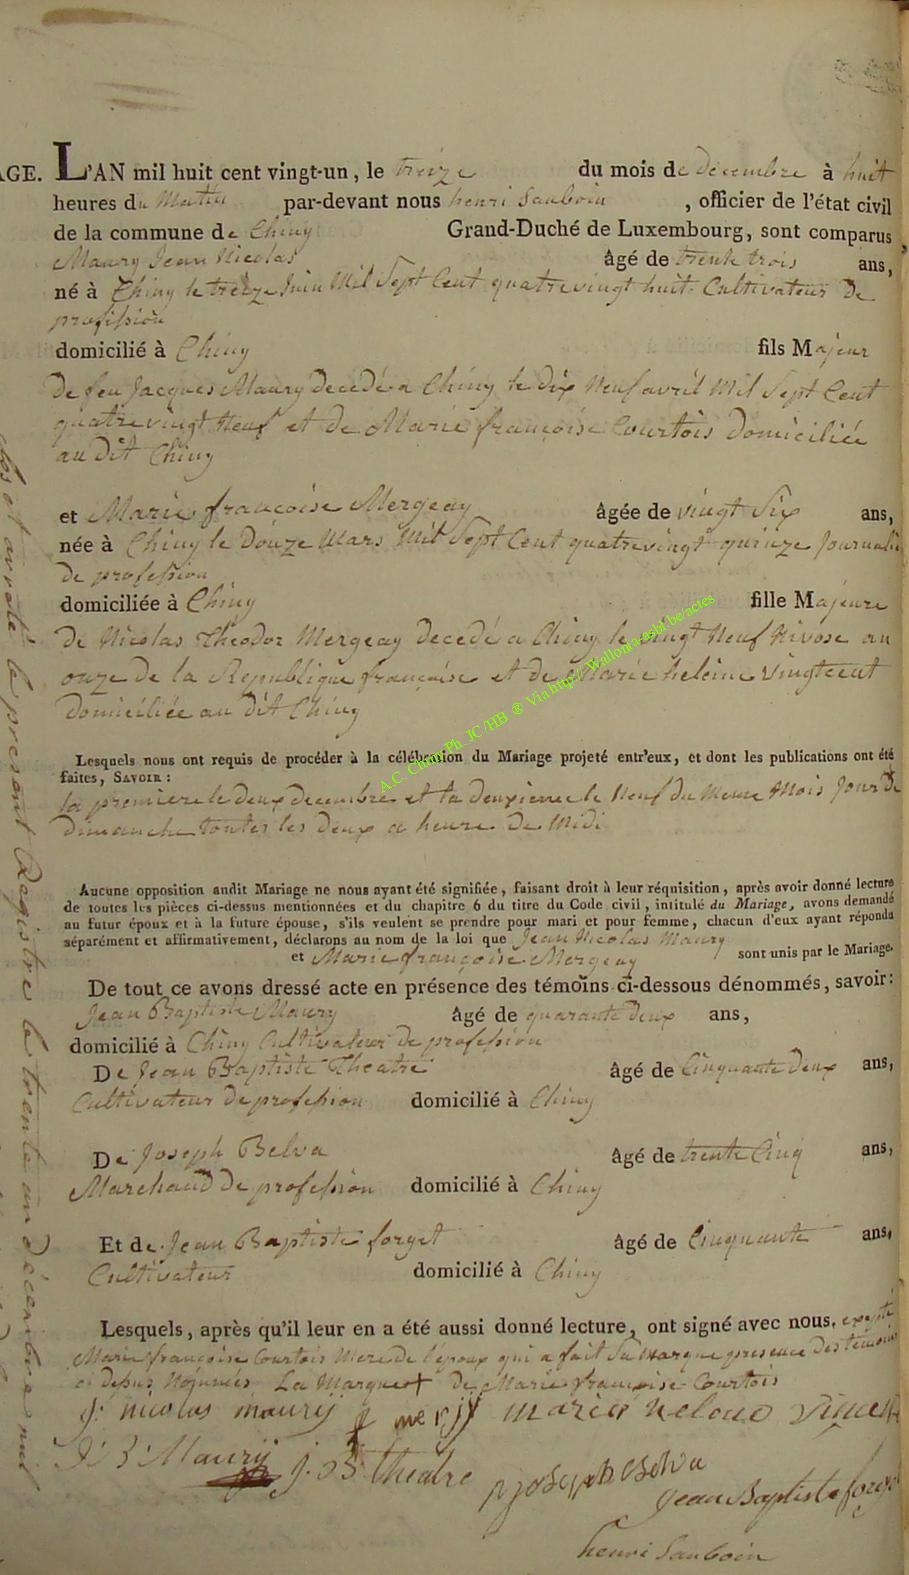 AGE. L'AN mil huit cent vingt-un, le treize du mois de decembre à huit
heures du Matin par-devant nous henri Sauboin, officier de l'état civil
de la commune de Chiny Grand-Duché de Luxembourg, sont comparus
Maury Jean Nicolas âgé de trente trois ans,
né à Chiny le treize Juin Mil Sept Cent quatrevingt huit. Cultivateur De
profession
domicilié à Chiny fils Majeur
De feu Jacques Maury decedé a Chiny le dix Neuf avril Mil Sept Cent
quatrevingt Neuf et de Marie françoise Courtois Domiciliée
au Dit Chiny
et Marie françoise Mergeay âgée de vingt Six ans,
née à Chiny le Douze Mars Mil Sept Cent quatrevingt quinze Journali
De profession
domiciliée à Chiny fille Majeure
De Nicolas Theodor Mergeay decedé a Chiny le vingt Neuf Nivose an
onze de la Republique françoise et de Marie heleine Vingtcent
Domiciliée au Dit Chiny
A.C. Chiny Ph. JC /HB ® Via http://Wallonia-asbl.be/actes
Lesquels nous ont requis de procéder à la célébration du Mariage projeté entr'eux, et dont les publications ont été
faites, SAVOIR :
la premiere le deux decembre et la deuxieme le Neuf du Meme Mois Jour De
Dimanche toutes les deux a heure De Midi
Aucune opposition audit Mariage ne nous ayant été signifiée, faisant droit à leur réquisition, après avoir donné lecture
de toutes les pièces ci-dessus mentionnées et du chapitre 6 du titre du Code civil, intitulé du Mariage, avons demandé
au futur époux et à la future épouse, s'ils veulent se prendre pour mari et pour femme, chacun d'eux ayant répondu
séparément et affirmativement, déclarons au nom de la loi que Jean Nicolas Maury
et Marie françoise Mergeay sont unis par le Mariage.
De tout ce avons dressé acte en présence des témoins ci-dessous dénommés, savoir :
Jean Baptiste Maury âgé de quarante deux ans,
domicilié à Chiny Cultivateur de profession
De Jean Baptiste Theatre âgé de Cinquante Deux ans,
Cultivateur De profession domicilié à Chiny
De Joseph Belva âgé de trente Cinq ans,
Marchand De profession domicilié à Chiny
Et de Jean Baptiste forget âgé de Cinquante ans,
Cultivateur domicilié à Chiny
Lesquels, après qu'il leur en a été aussi donné lecture, ont signé avec nous. excepté
Marie françoise Courtois Mere de l'époux qui a fait Sa Marque presence des temoins
ci dessus Nommés La Marque + De Marie françoise Courtois
J. nicolas maury marie
J. B. Maury J. B. theatre joseph Belva
Jean Baptiste forget
henri Sauboin
et arreté le present Registre le trente un Décembre mil